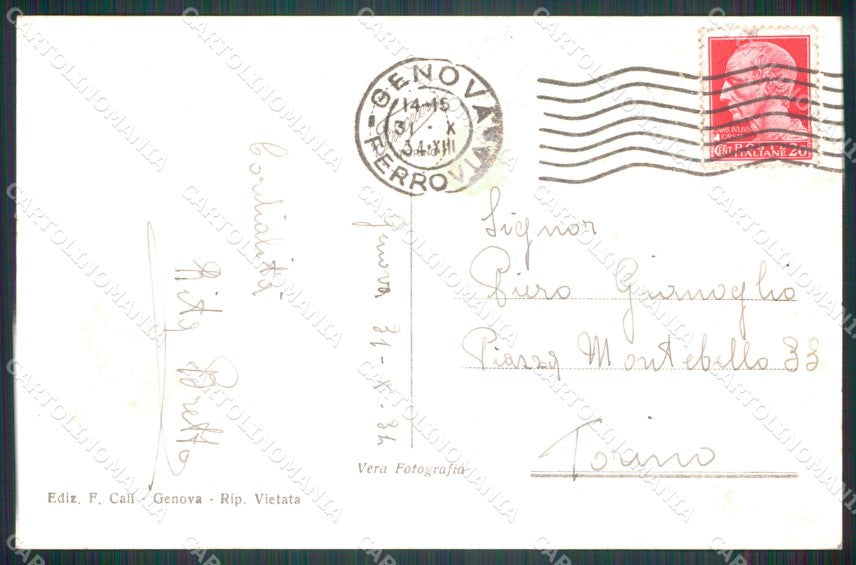 GENOVA
14-15
31 · X
34·XIII
FERROVIA
CENT POSTE ITALIANE 20
Cordialità
Rita
Genova 31-X-34
Signor
Piero Gianoglio
Piazza Montebello 33
Torino
Vera Fotografia
Ediz. F. Calì - Genova - Rip. Vietata
CARTOLINOMANIA